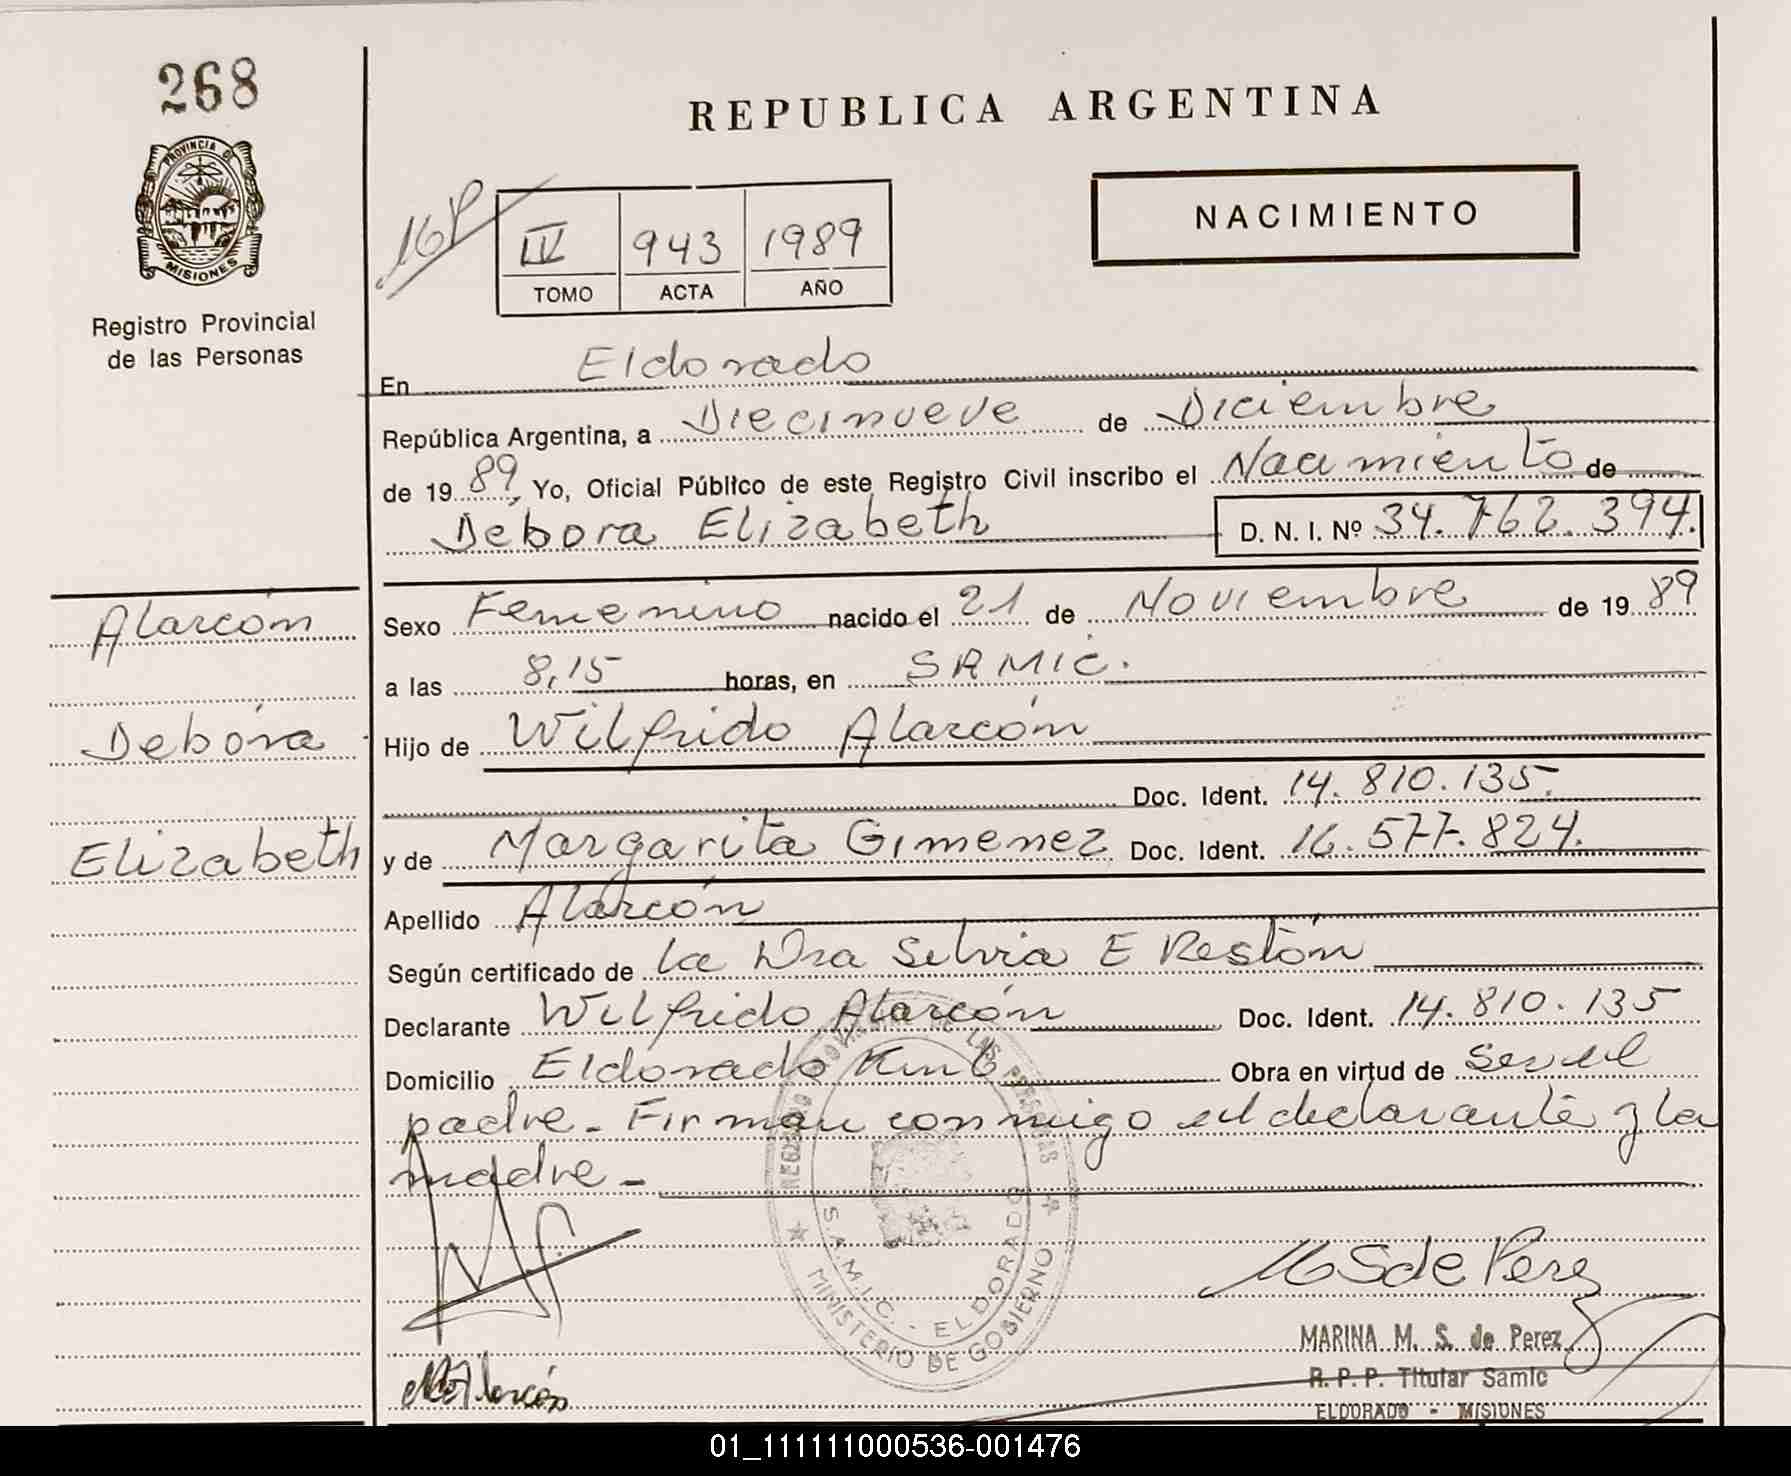 268
PROVINCIA DE
MISIONES
Registro Provincial
de las Personas
REPUBLICA ARGENTINA
NACIMIENTO
IV 943 1989
TOMO ACTA AÑO
En Eldorado
República Argentina, a Diecinueve de Diciembre
de 19 89, Yo, Oficial Público de este Registro Civil inscribo el Nacimiento de
Débora Elizabeth D. N. I. Nº 34.762.394.
Alarcón
Debóra
Elizabeth
Sexo Femenino nacido el 21 de Noviembre de 19 89
a las 8,15 horas, en SAMIC.
Hijo de Wilfrido Alarcón
Doc. Ident. 14.810.135.
y de Margarita Gimenez Doc. Ident. 16.577.824.
Apellido Alarcón
Según certificado de la Dra Silvia E Restón
Declarante Wilfrido Alarcón Doc. Ident. 14.810.135
Domicilio Eldorado Km 6 Obra en virtud de ser el
padre. Firman conmigo el declarante y la
madre -
REGISTRO PROVINCIAL DE LAS PERSONAS
S.A.M.I.C. - ELDORADO
MINISTERIO DE GOBIERNO
M S de Perez
MARINA M. S. de Perez
R. P. P. Titular Samic
ELDORADO - MISIONES
01_111111000536-001476